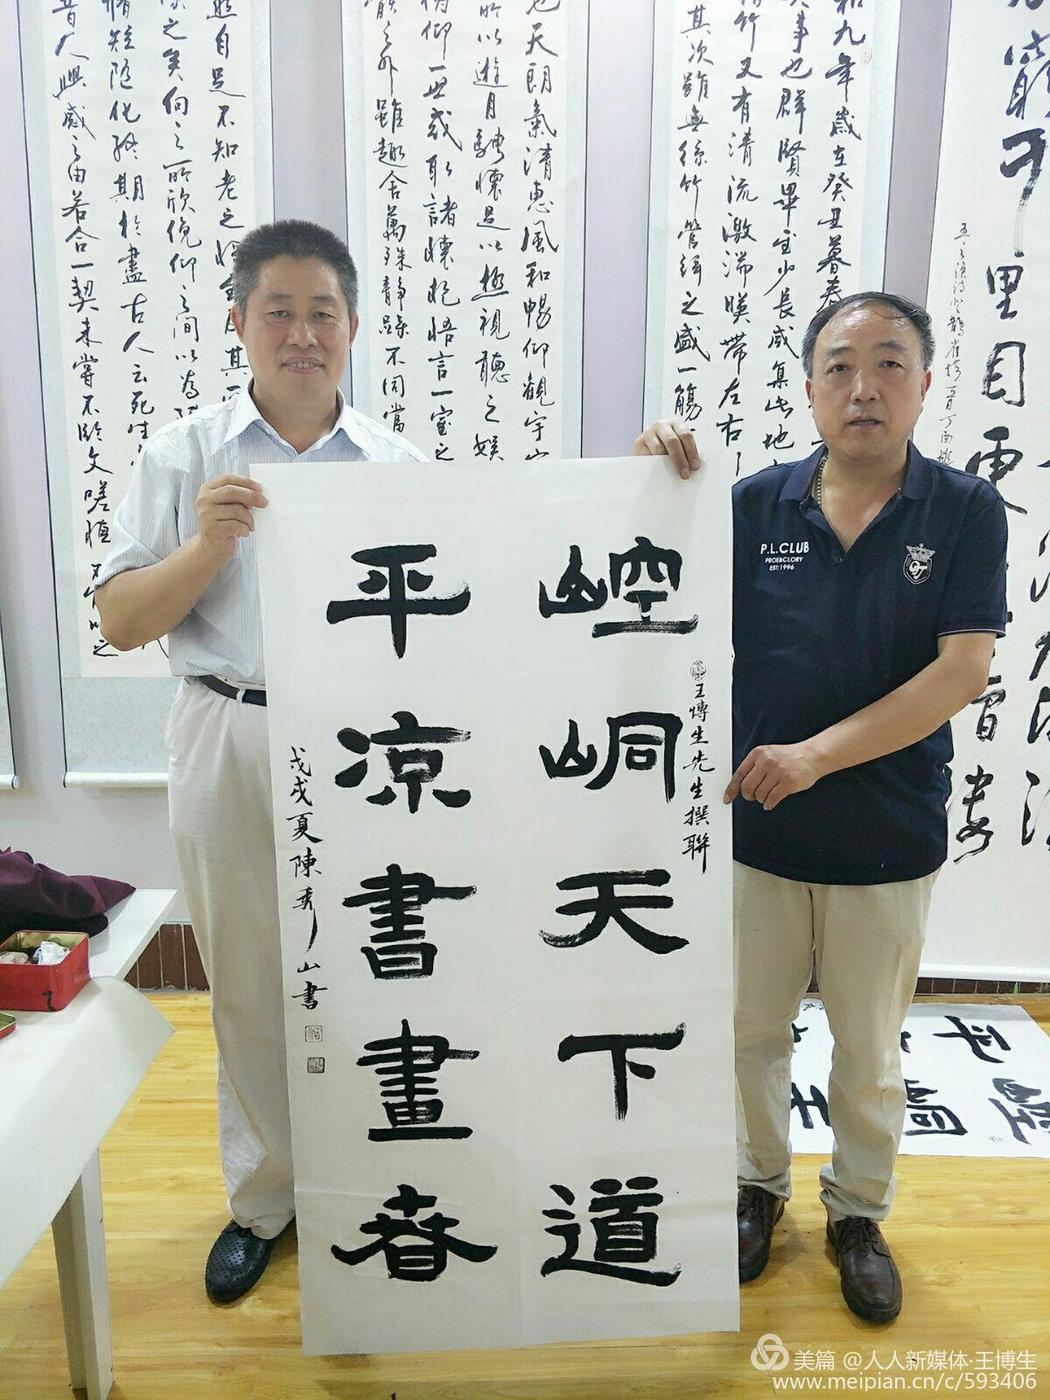 崆峒天下道
王博生先生撰聯
平凉書畫春
戊戌夏陳秀山書
P.L.CLUB
PROE&CLORY
EST:1996
和九年歲在癸丑暮春
事也群賢畢至少長咸集此地
竹又有清流激湍暎帶左右
其次雖無絲竹管絃之盛一觴
也天朗氣清惠風和暢仰觀宇
所以遊目騁懷足以極視聽之娛
俯仰一世或取諸懷抱悟言一室之
骸之外雖趣舍萬殊靜躁不同當
自足不知老之
係之矣向之所欣俛仰之間以為
脩短隨化終期於盡古人云死生
昔人興感之由若合一契未嘗不臨文嗟悼不
窮千里目更
層樓
平
崆峒
美篇 @人人新媒体·王博生
www.meipian.cn/c/593406